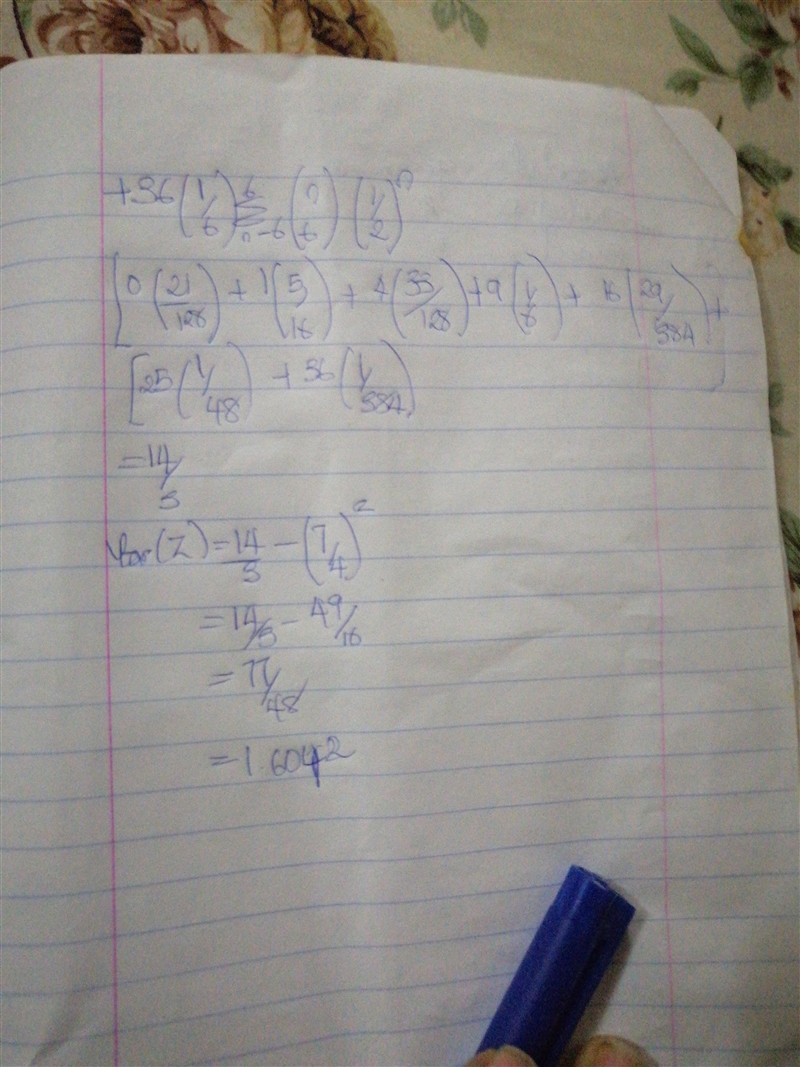 +36(1/6) 6Σn=6 (n 6) (1/2)^n
[0(21/128) + 1(5/16) + 4(33/128) + 9(1/6) + 16(29/384) +
[25(1/48) + 36(1/384)]
= 14/3
Var(Z) = 14/3 - (7/4)^2
= 14/3 - 49/16
= 77/48
= 1.6042